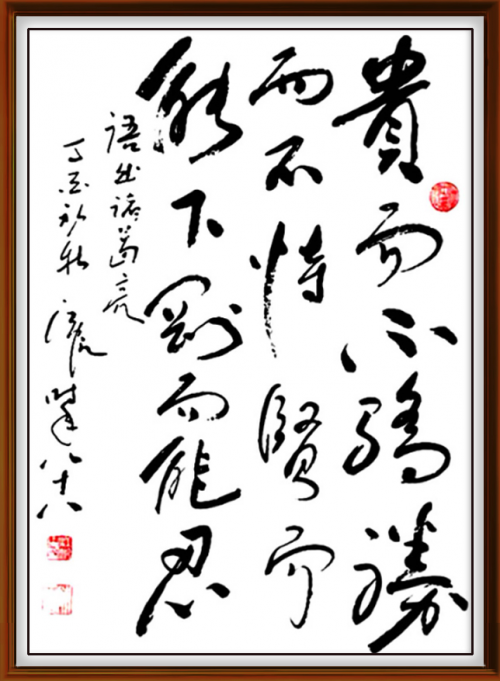 貴而不驕勝
而不恃賢而
能下剛而能忍
語出諸葛亮
丁酉初秋 時年八十八